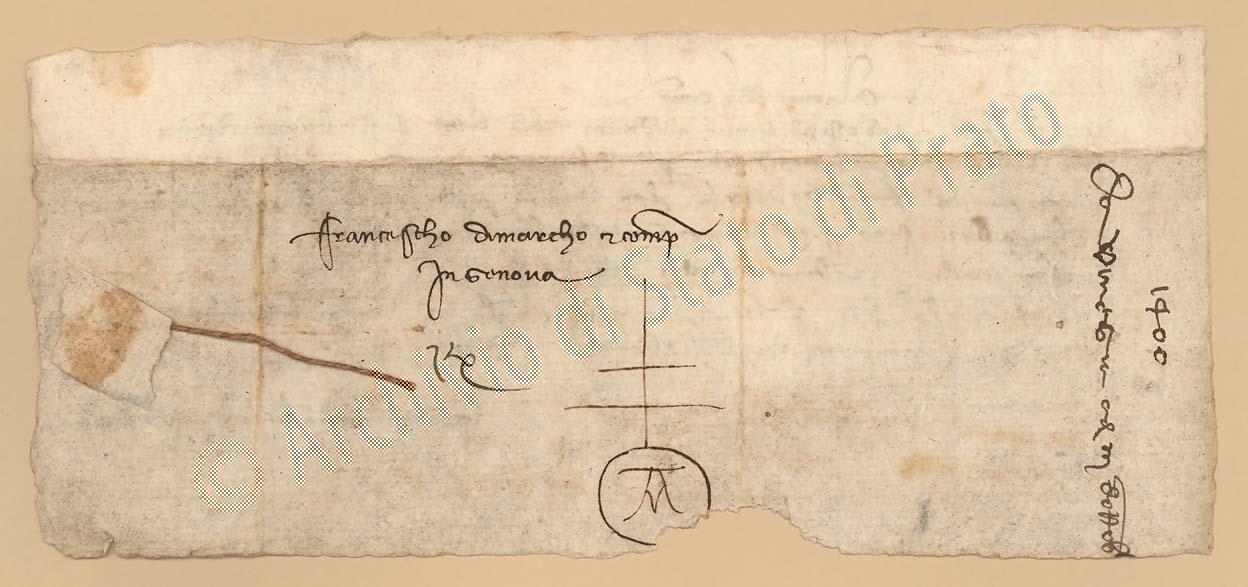 Francescho dimarcho & comp
In Genova
1400
Da Vinegia a dì dottob
© Archivio di Stato di Prato